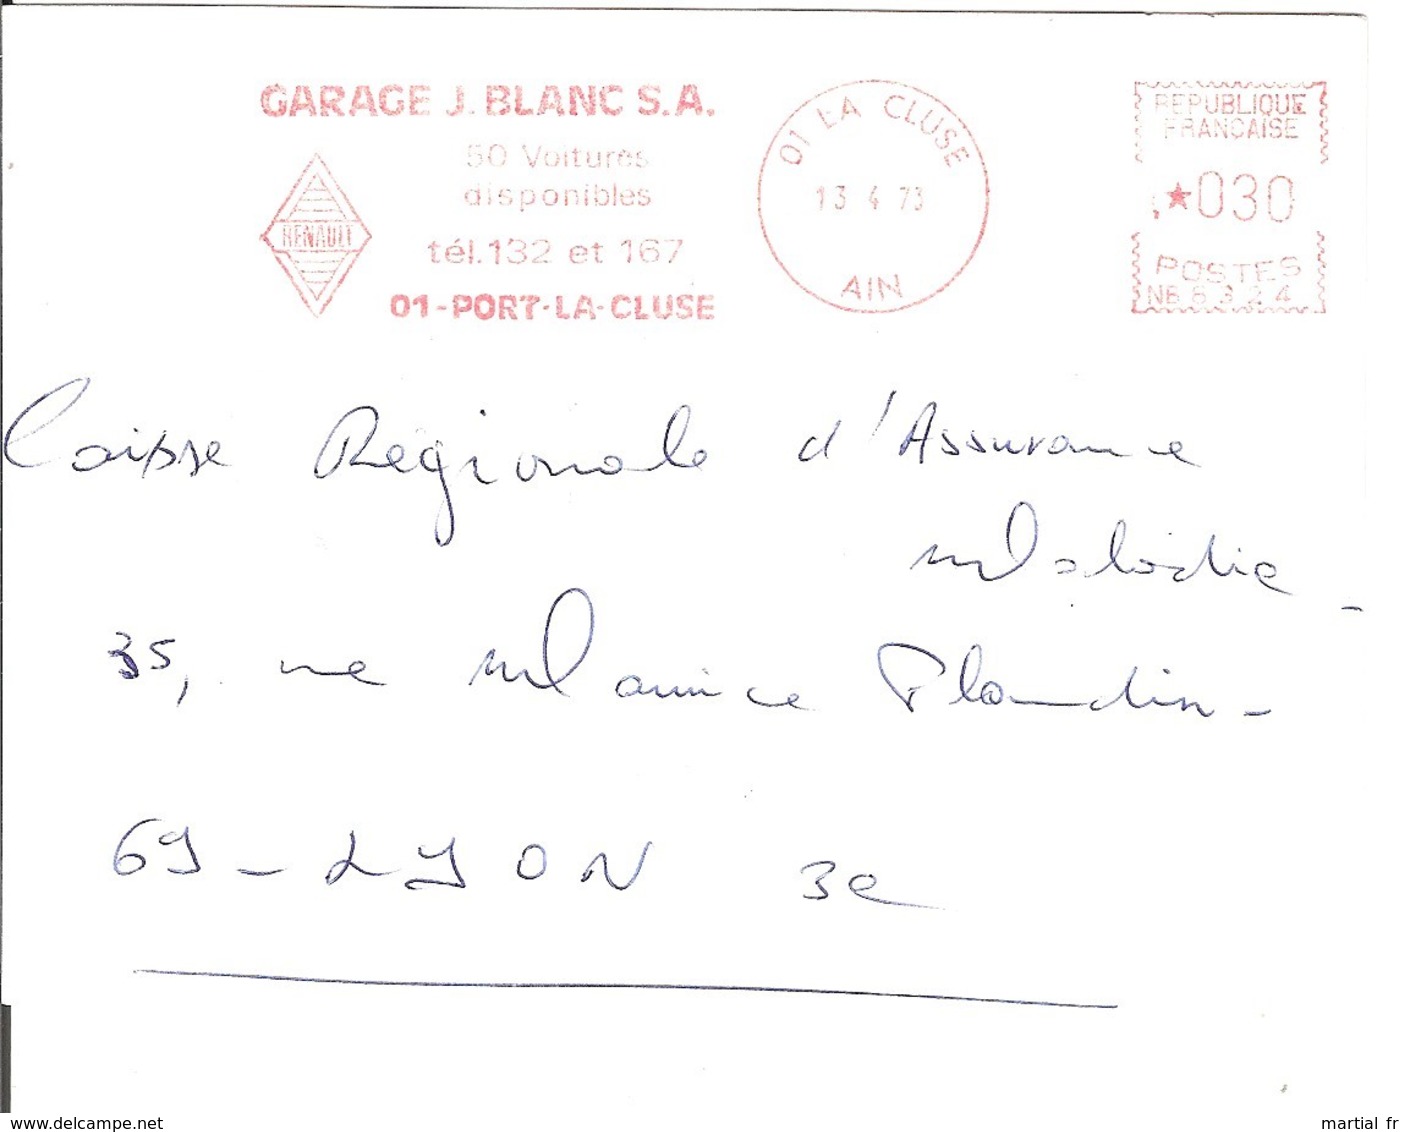 GARAGE J. BLANC S.A.
50 Voitures
disponibles
RENAULT
tél. 132 et 167
01-PORT-LA-CLUSE
01 LA CLUSE
13 4 73
AIN
REPUBLIQUE
FRANCAISE
★030
POSTES
NB 6324
Caisse Régionale d'Assurance
Maladie -
35, rue Maurice Flandin -
69 - LYON 3e
www.delcampe.net
martial fr